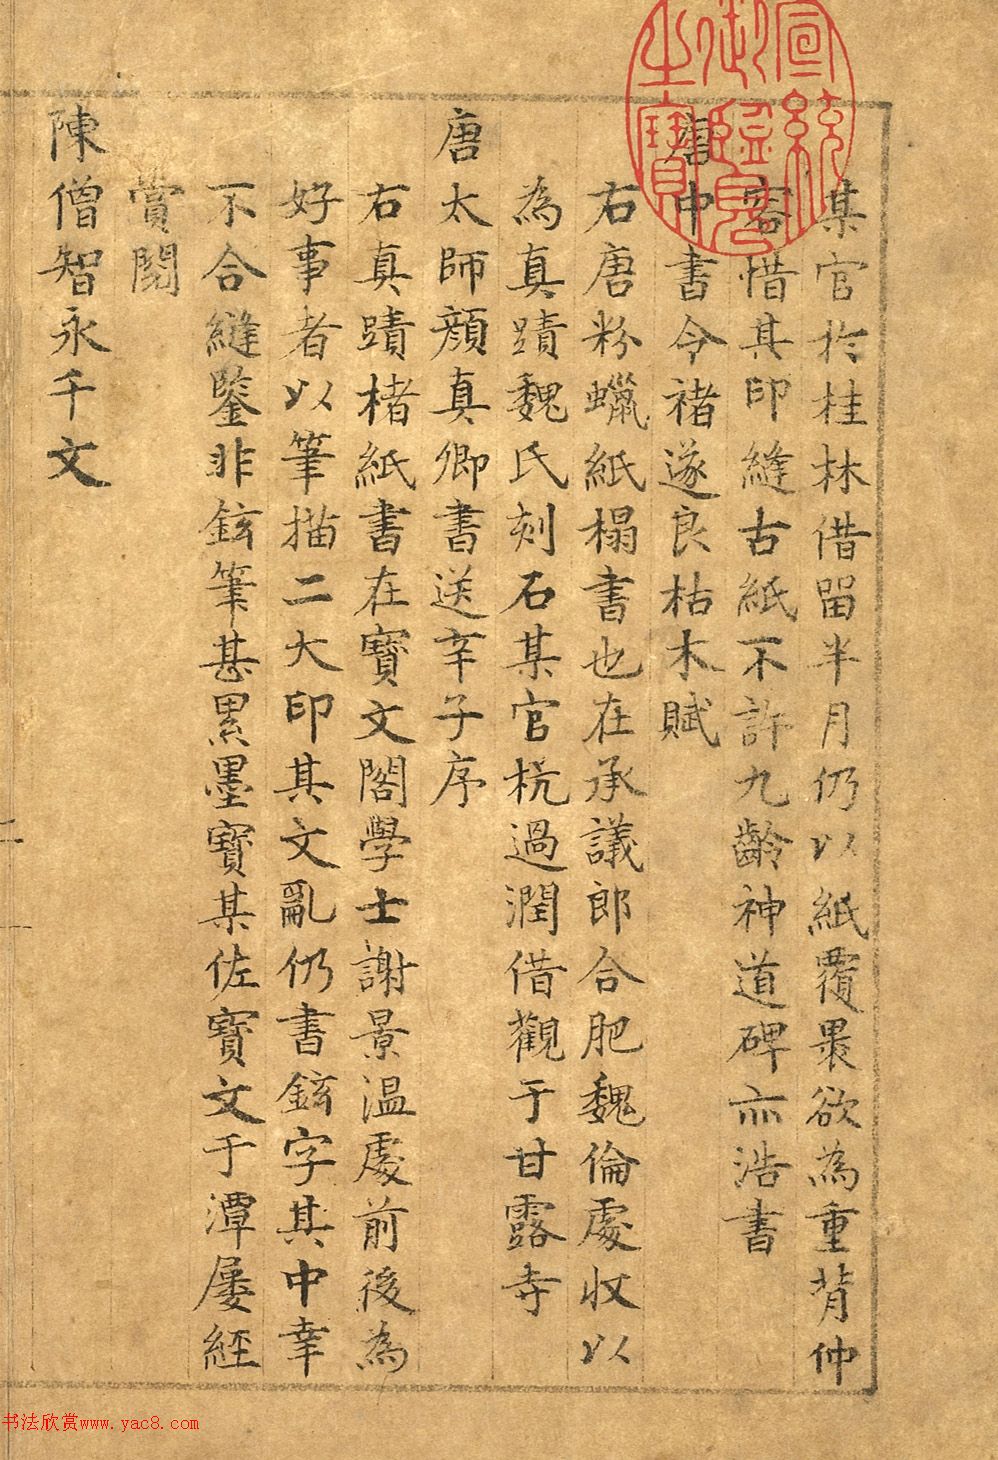 某官於桂林借留半月仍以紙覆褁欲為重背仲
容惜其印縫古紙不許九齡神道碑亦浩書
唐中書令褚遂良枯木賦
右唐粉蠟紙榻書也在承議郎合肥魏倫處收以
為真蹟魏氏刻石某官杭過潤借觀于甘露寺
唐太師顏真卿書送辛子序
右真蹟楮紙書在寶文閣學士謝景温處前後為
好事者以筆描二大印其文亂仍書鉉字其中幸
不合縫鑒非鉉筆甚累墨寶某佐寶文于潭屡經
賞閱
陳僧智永千文
宣統御覽之寶
二
书法欣赏www.yac8.com